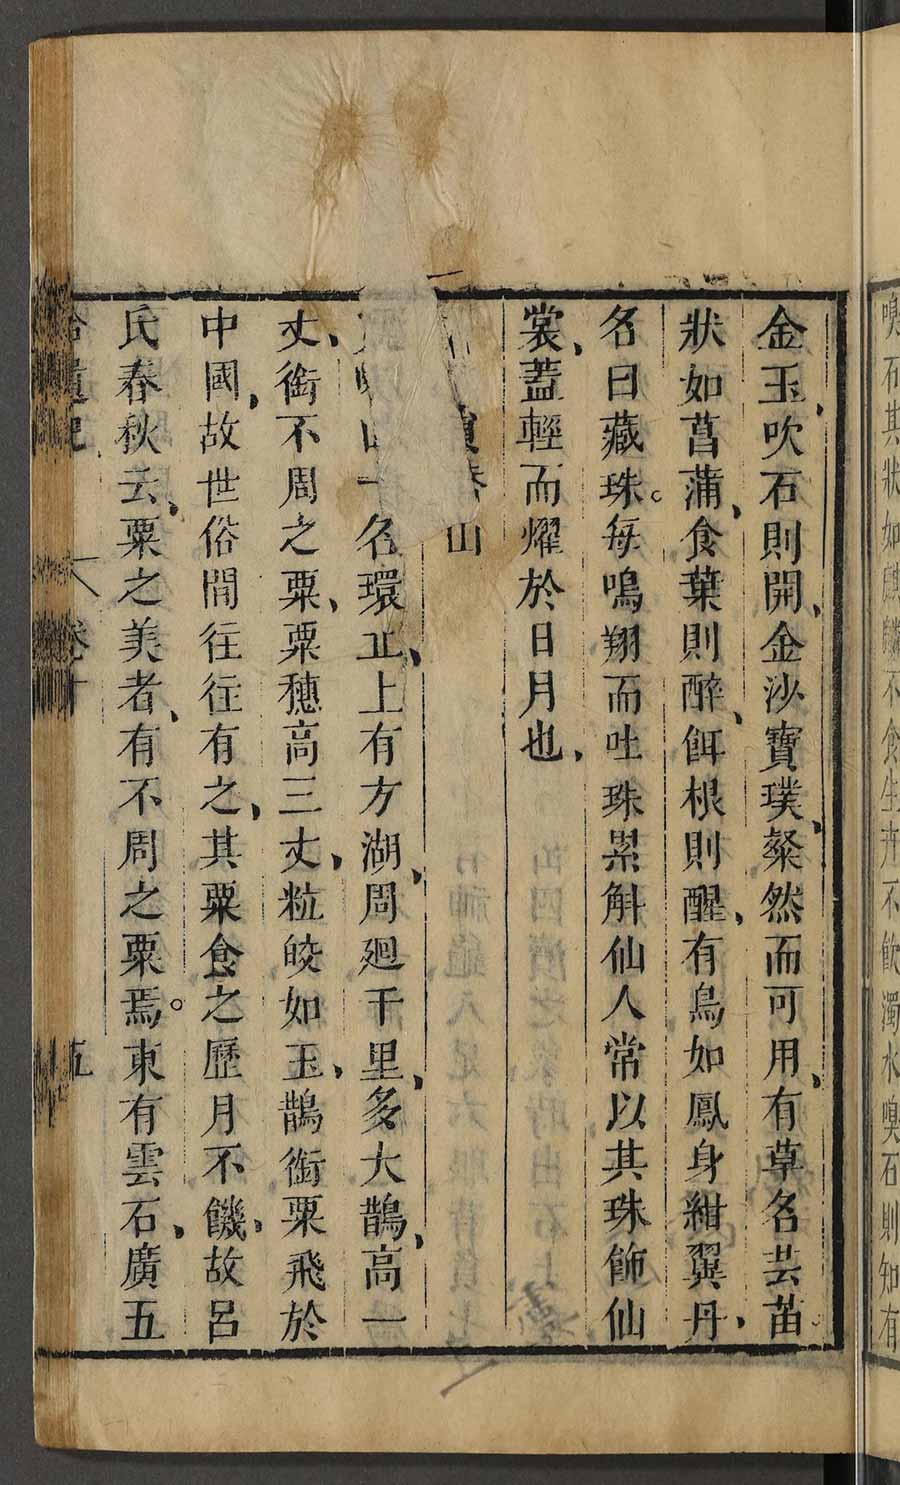 嗅石其狀如麒麟不食生卉不飲濁水嗅石則知有
金玉、吹石則開、金沙寶璞、粲然而可用、有草名芸苗
狀如菖蒲、食葉則醉、餌根則醒、有鳥如鳳身紺翼丹、
名曰藏珠。每鳴翔而吐珠累斛仙人常以其珠飾仙
裳、蓋輕而燿於日月也、
山
名環丘、上有方湖、周廻千里、多大鵲、高一
丈、銜不周之粟、粟穗高三丈、粒皎如玉、鵲銜粟飛於
中國、故世俗間往往有之、其粟食之歷月不饑、故呂
氏春秋云、粟之美者、有不周之粟焉。東有雲石、廣五
遺記 卷十 五